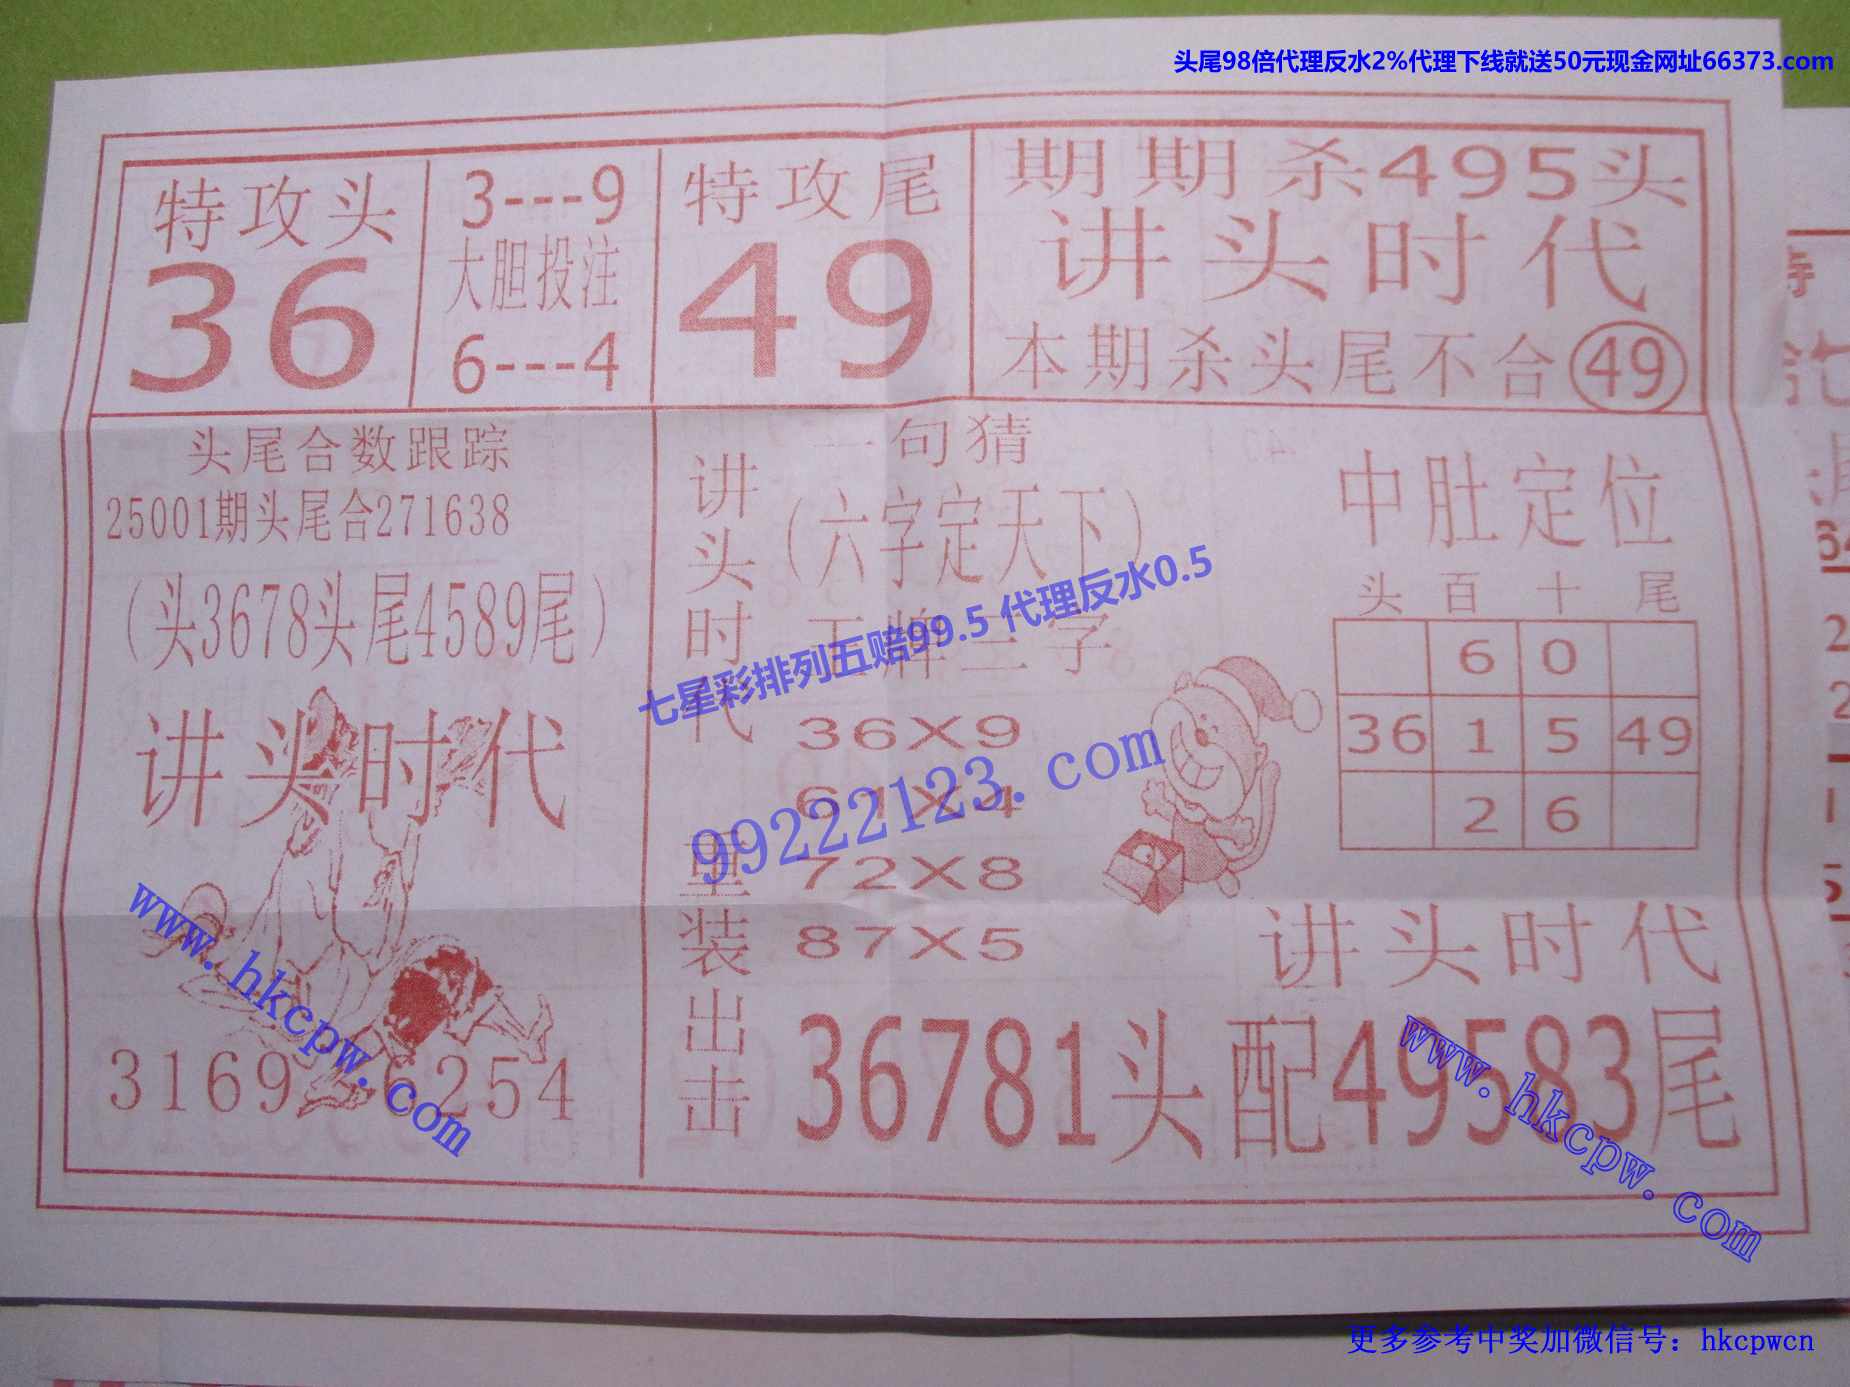 头尾98倍代理反水2%代理下线就送50元现金网址66373.com
特攻头
36
3---9
大胆投注
6---4
特攻尾
49
期期杀495头
讲头时代
本期杀头尾不合49
头尾合数跟踪
25001期头尾合271638
(头3678头尾4589尾)
讲头时代
3169 6254
www.hkcpw.com
讲头时代
重装出击
一句猜
(六字定天下)
王牌三字
36X9
61X4
72X8
87X5
七星彩排列五赔99.5 代理反水0.5
99222123.com
中肚定位
头 百 十 尾
6 0
36 1 5 49
2 6
讲头时代
36781头配49583尾
www.hkcpw.com
更多参考中奖加微信号：hkcpwcn